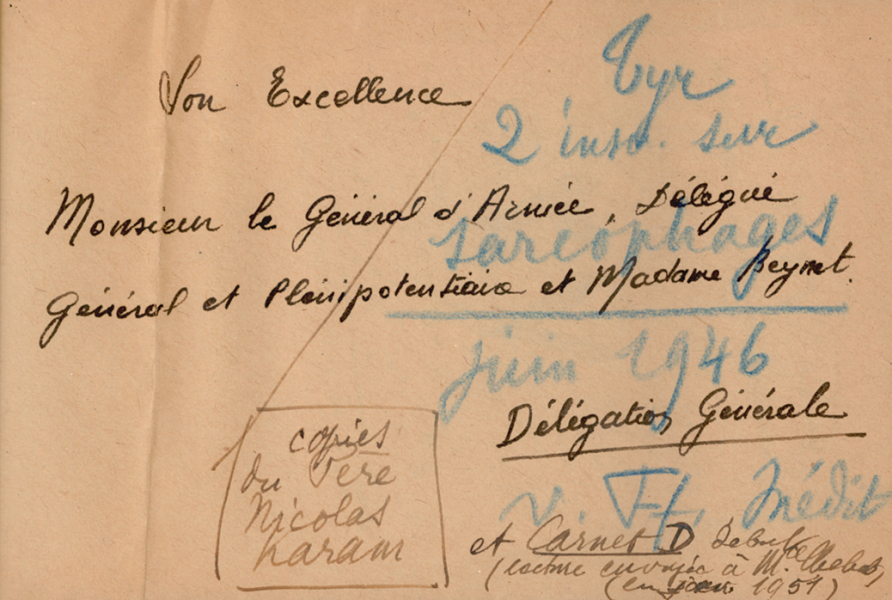 Son Excellence
Monsieur le Général d'Armée, Délégué
Général et Plénipotentiaire et Madame Beynet.
Délégation Générale
Tyr
2 insc. sur
sarcophages
juin 1946
v. Inédit
copies
du Père
Nicolas
Karam
et Carnet D
envoyée à M.
1951)